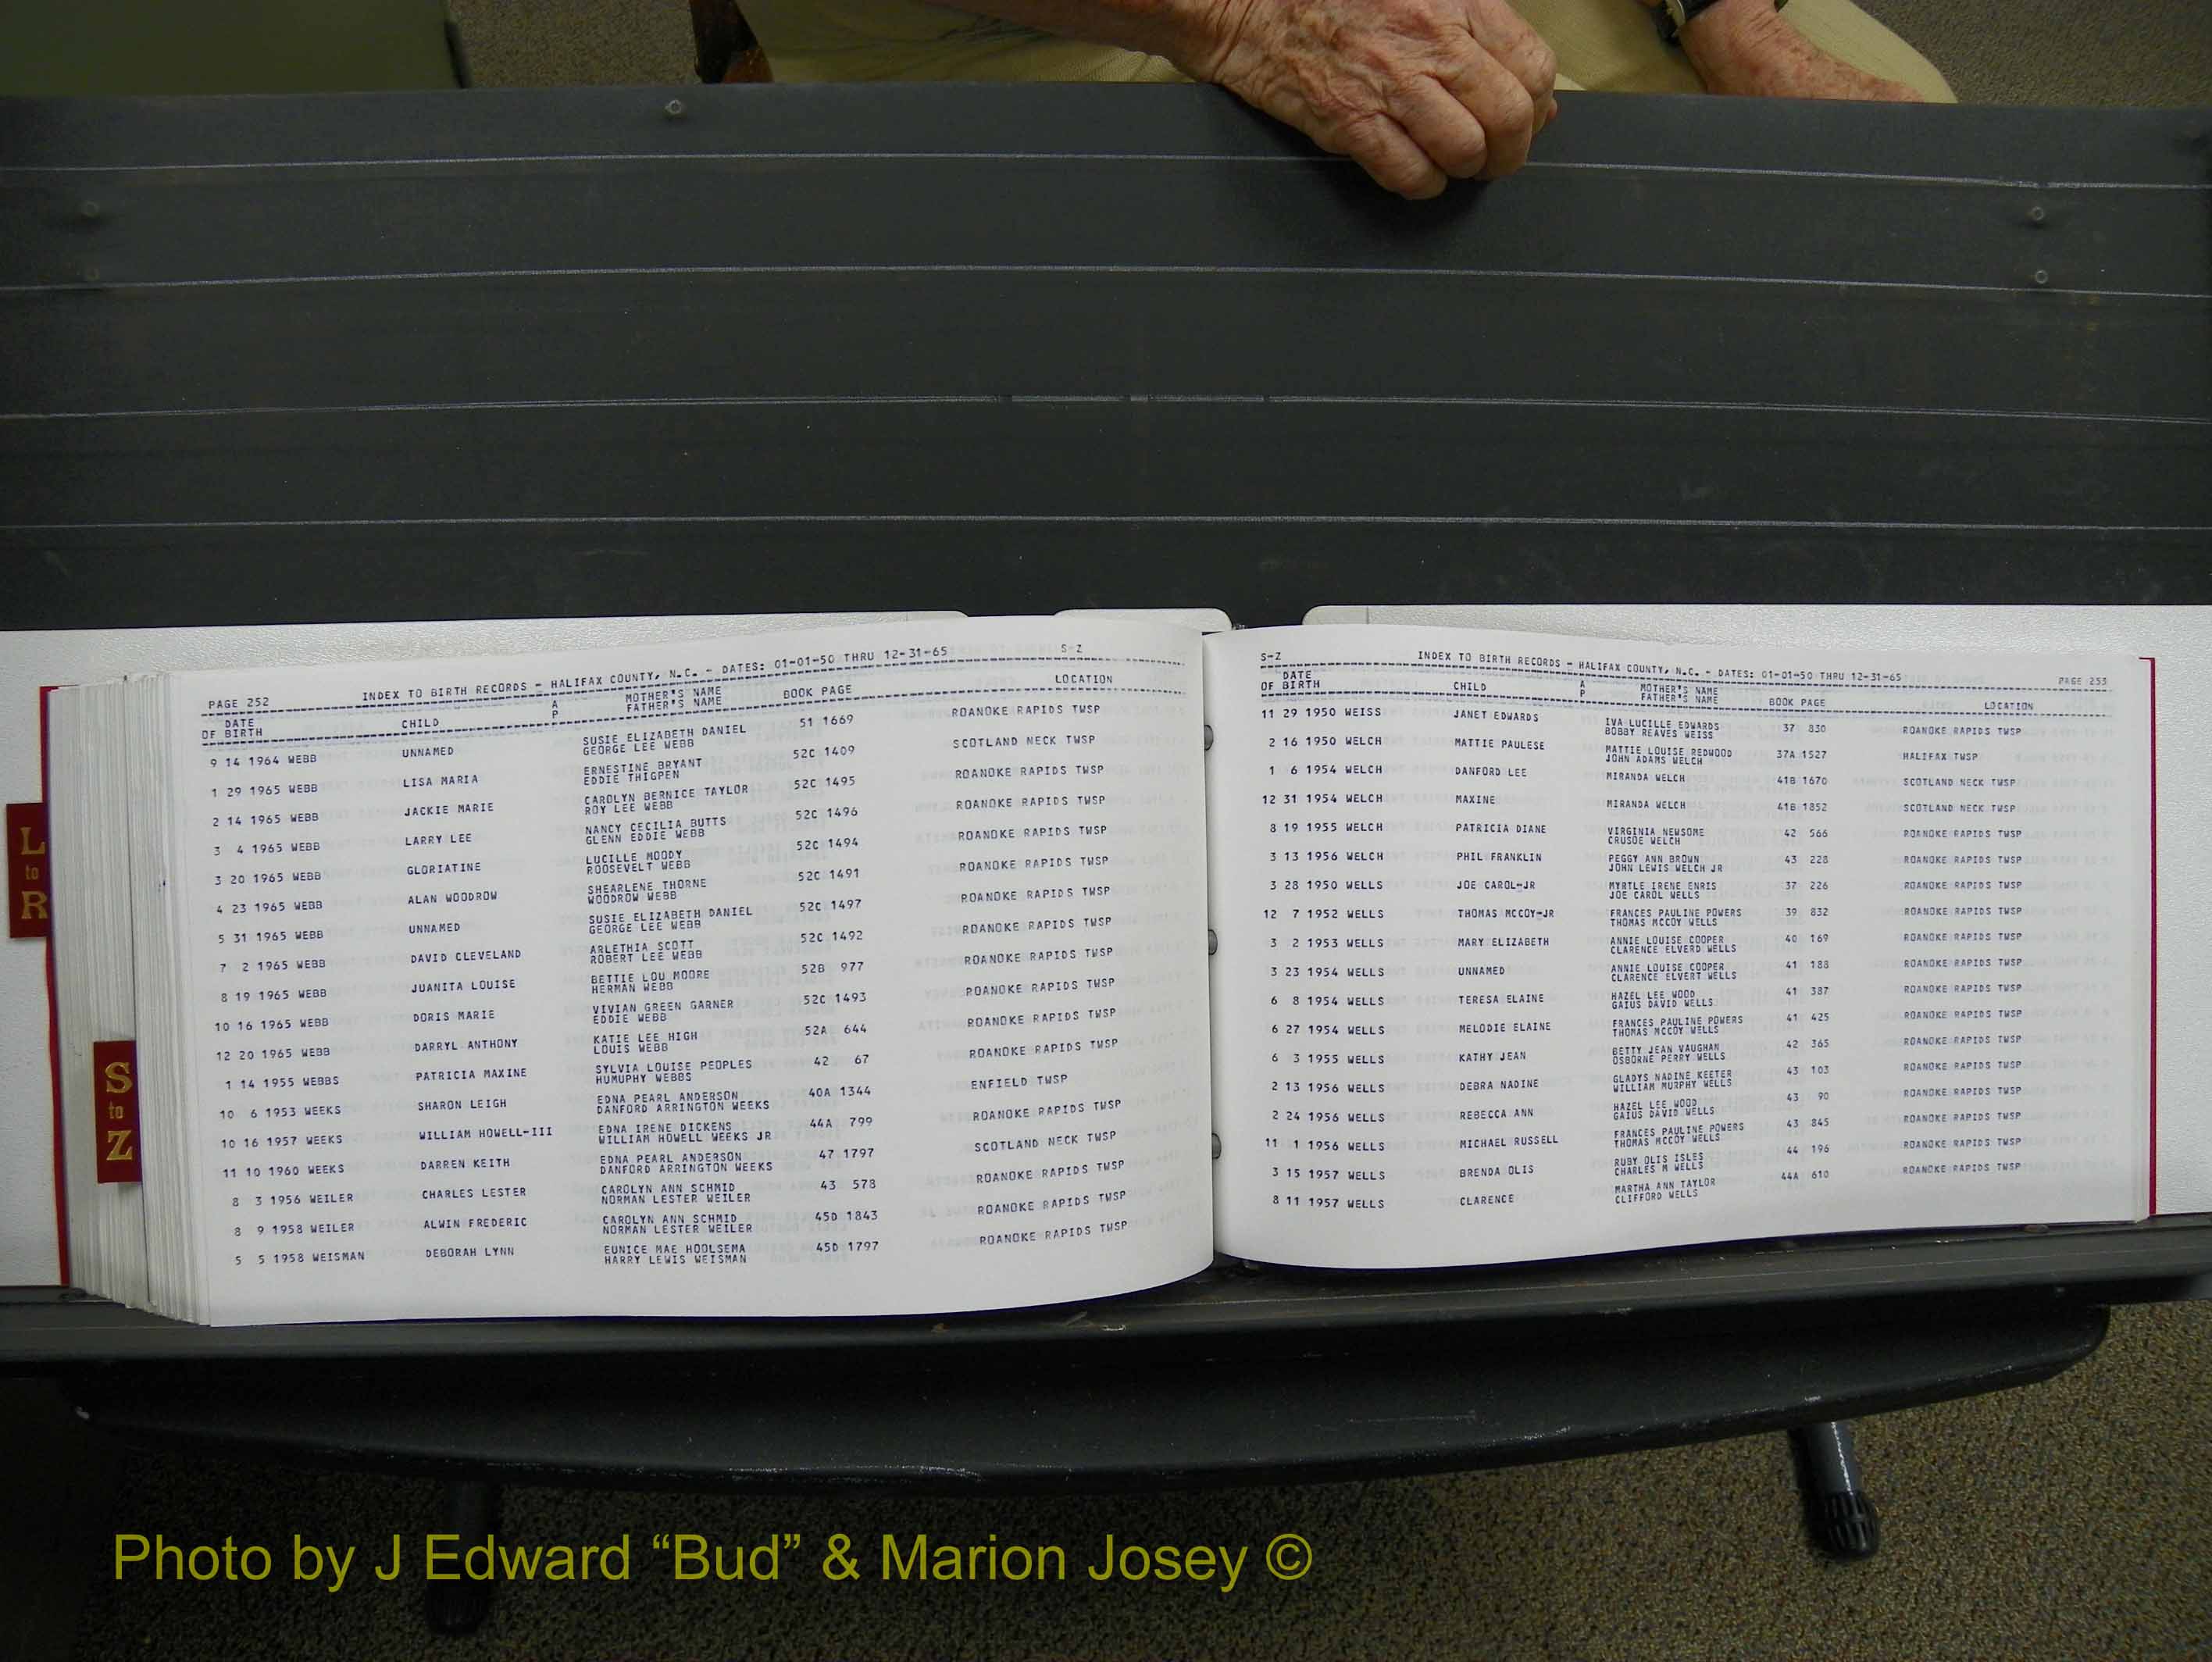 L
to
R
S
to
Z
PAGE 252 INDEX TO BIRTH RECORDS - HALIFAX COUNTY, N.C. - DATES: 01-01-50 THRU 12-31-65 S-Z
DATE OF BIRTH CHILD A P MOTHER'S NAME FATHER'S NAME BOOK PAGE LOCATION
9 14 1964 WEBB UNNAMED SUSIE ELIZABETH DANIEL 51 1669 ROANOKE RAPIDS TWSP
GEORGE LEE WEBB
1 29 1965 WEBB LISA MARIA ERNESTINE BRYANT 52C 1409 SCOTLAND NECK TWSP
EDDIE THIGPEN
2 14 1965 WEBB JACKIE MARIE CAROLYN BERNICE TAYLOR 52C 1495 ROANOKE RAPIDS TWSP
ROY LEE WEBB
3 4 1965 WEBB LARRY LEE NANCY CECILIA BUTTS 52C 1496 ROANOKE RAPIDS TWSP
GLENN EDDIE WEBB
3 20 1965 WEBB GLORIATINE LUCILLE MOODY 52C 1494 ROANOKE RAPIDS TWSP
ROOSEVELT WEBB
4 23 1965 WEBB ALAN WOODROW SHEARLENE THORNE 52C 1491 ROANOKE RAPIDS TWSP
WOODROW WEBB
5 31 1965 WEBB UNNAMED SUSIE ELIZABETH DANIEL 52C 1497 ROANOKE RAPIDS TWSP
GEORGE LEE WEBB
7 2 1965 WEBB DAVID CLEVELAND ARLETHIA SCOTT 52C 1492 ROANOKE RAPIDS TWSP
ROBERT LEE WEBB
8 19 1965 WEBB JUANITA LOUISE BETTIE LOU MOORE 52B 977 ROANOKE RAPIDS TWSP
HERMAN WEBB
10 16 1965 WEBB DORIS MARIE VIVIAN GREEN GARNER 52C 1493 ROANOKE RAPIDS TWSP
EDDIE WEBB
12 20 1965 WEBB DARRYL ANTHONY KATIE LEE HIGH 52A 644 ROANOKE RAPIDS TWSP
LOUIS WEBB
1 14 1955 WEBBS PATRICIA MAXINE SYLVIA LOUISE PEOPLES 42 67 ROANOKE RAPIDS TWSP
HUMUPHY WEBBS
10 6 1953 WEEKS SHARON LEIGH EDNA PEARL ANDERSON 40A 1344 ENFIELD TWSP
DANFORD ARRINGTON WEEKS
10 16 1957 WEEKS WILLIAM HOWELL-III EDNA IRENE DICKENS 44A 799 ROANOKE RAPIDS TWSP
WILLIAM HOWELL WEEKS JR
11 10 1960 WEEKS DARREN KEITH EDNA PEARL ANDERSON 47 1797 SCOTLAND NECK TWSP
DANFORD ARRINGTON WEEKS
8 3 1956 WEILER CHARLES LESTER CAROLYN ANN SCHMID 43 578 ROANOKE RAPIDS TWSP
NORMAN LESTER WEILER
8 9 1958 WEILER ALWIN FREDERIC CAROLYN ANN SCHMID 45D 1843 ROANOKE RAPIDS TWSP
NORMAN LESTER WEILER
5 5 1958 WEISMAN DEBORAH LYNN EUNICE MAE HOOLSEMA 45D 1797 ROANOKE RAPIDS TWSP
HARRY LEWIS WEISMAN
S-Z INDEX TO BIRTH RECORDS - HALIFAX COUNTY, N.C. - DATES: 01-01-50 THRU 12-31-65 PAGE 253
DATE OF BIRTH CHILD A P MOTHER'S NAME FATHER'S NAME BOOK PAGE LOCATION
11 29 1950 WEISS JANET EDWARDS IVA LUCILLE EDWARDS 37 830 ROANOKE RAPIDS TWSP
BOBBY REAVES WEISS
2 16 1950 WELCH MATTIE PAULESE MATTIE LOUISE REDWOOD 37A 1527 HALIFAX TWSP
JOHN ADAMS WELCH
1 6 1954 WELCH DANFORD LEE MIRANDA WELCH 41B 1670 SCOTLAND NECK TWSP
12 31 1954 WELCH MAXINE MIRANDA WELCH 41B 1852 SCOTLAND NECK TWSP
8 19 1955 WELCH PATRICIA DIANE VIRGINIA NEWSOME 42 566 ROANOKE RAPIDS TWSP
CRUSOE WELCH
3 13 1956 WELCH PHIL FRANKLIN PEGGY ANN BROWN 43 228 ROANOKE RAPIDS TWSP
JOHN LEWIS WELCH JR
3 28 1950 WELLS JOE CAROL-JR MYRTLE IRENE ENRIS 37 226 ROANOKE RAPIDS TWSP
JOE CAROL WELLS
12 7 1952 WELLS THOMAS MCCOY-JR FRANCES PAULINE POWERS 39 832 ROANOKE RAPIDS TWSP
THOMAS MCCOY WELLS
3 2 1953 WELLS MARY ELIZABETH ANNIE LOUISE COOPER 40 169 ROANOKE RAPIDS TWSP
CLARENCE ELVERD WELLS
3 23 1954 WELLS UNNAMED ANNIE LOUISE COOPER 41 188 ROANOKE RAPIDS TWSP
CLARENCE ELVERT WELLS
6 8 1954 WELLS TERESA ELAINE HAZEL LEE WOOD 41 387 ROANOKE RAPIDS TWSP
GAIUS DAVID WELLS
6 27 1954 WELLS MELODIE ELAINE FRANCES PAULINE POWERS 41 425 ROANOKE RAPIDS TWSP
THOMAS MCCOY WELLS
6 3 1955 WELLS KATHY JEAN BETTY JEAN VAUGHAN 42 365 ROANOKE RAPIDS TWSP
OSBORNE PERRY WELLS
2 13 1956 WELLS DEBRA NADINE GLADYS NADINE KEETER 43 103 ROANOKE RAPIDS TWSP
WILLIAM MURPHY WELLS
2 24 1956 WELLS REBECCA ANN HAZEL LEE WOOD 43 90 ROANOKE RAPIDS TWSP
GAIUS DAVID WELLS
11 1 1956 WELLS MICHAEL RUSSELL FRANCES PAULINE POWERS 43 845 ROANOKE RAPIDS TWSP
THOMAS MCCOY WELLS
3 15 1957 WELLS BRENDA OLIS RUBY OLIS ISLES 44 196 ROANOKE RAPIDS TWSP
CHARLES M WELLS
8 11 1957 WELLS CLARENCE MARTHA ANN TAYLOR 44A 610 ROANOKE RAPIDS TWSP
CLIFFORD WELLS
Photo by J Edward “Bud” & Marion Josey ©